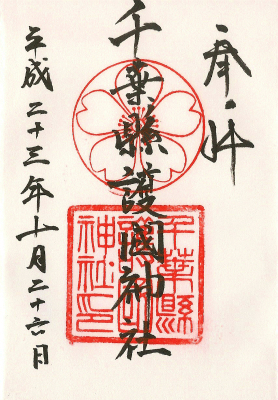 奉拝
千葉縣護國神社
平成二十三年十月二十六日
千葉縣護國神社印